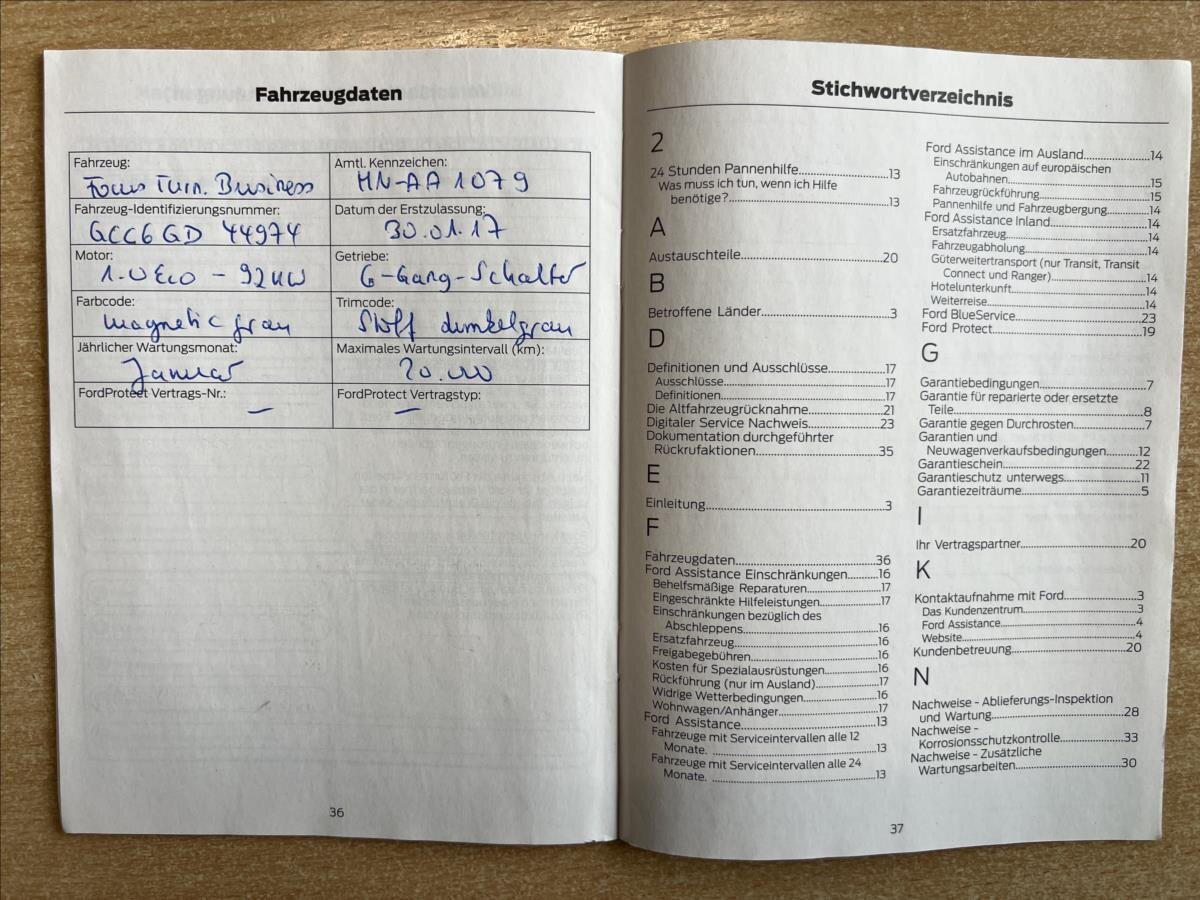 Fahrzeugdaten
Fahrzeug:
Focus Turn. Business
Amtl. Kennzeichen:
MN-AA 1079
Fahrzeug-Identifizierungsnummer:
GCC6GD 44974
Datum der Erstzulassung:
30.01.17
Motor:
Eco - 92 KW
Getriebe:
6-Gang-Schalter
Farbcode:
magnetic grau
Trimcode:
Stoff dunkelgrau
Jährlicher Wartungsmonat:
Januar
Maximales Wartungsintervall (km):
20.000
FordProtect Vertrags-Nr.:
—
FordProtect Vertragstyp:
—
36
Stichwortverzeichnis
2
24 Stunden Pannenhilfe..........13
Was muss ich tun, wenn ich Hilfe
benötige?..........13
A
Austauschteile..........20
B
Betroffene Länder..........3
D
Definitionen und Ausschlüsse..........17
Ausschlüsse..........17
Definitionen..........17
Die Altfahrzeugrücknahme..........21
Digitaler Service Nachweis..........23
Dokumentation durchgeführter
Rückrufaktionen..........35
E
Einleitung..........3
F
Fahrzeugdaten..........36
Ford Assistance Einschränkungen..........16
Behelfsmäßige Reparaturen..........17
Eingeschränkte Hilfeleistungen..........17
Einschränkungen bezüglich des
Abschleppens..........16
Ersatzfahrzeug..........16
Freigabegebühren..........16
Kosten für Spezialausrüstungen..........16
Rückführung (nur im Ausland)..........17
Widrige Wetterbedingungen..........16
Wohnwagen/Anhänger..........17
Ford Assistance..........13
Fahrzeuge mit Serviceintervallen alle 12
Monate. ..........13
Fahrzeuge mit Serviceintervallen alle 24
Monate. ..........13
Ford Assistance im Ausland..........14
Einschränkungen auf europäischen
Autobahnen..........15
Fahrzeugrückführung..........15
Pannenhilfe und Fahrzeugbergung..........14
Ford Assistance Inland..........14
Ersatzfahrzeug..........14
Fahrzeugabholung..........14
Güterweitertransport (nur Transit, Transit
Connect und Ranger)..........14
Hotelunterkunft..........14
Weiterreise..........14
Ford BlueService..........23
Ford Protect..........19
G
Garantiebedingungen..........7
Garantie für reparierte oder ersetzte
Teile..........8
Garantie gegen Durchrosten..........7
Garantien und
Neuwagenverkaufsbedingungen..........12
Garantieschein..........22
Garantieschutz unterwegs..........11
Garantiezeiträume..........5
I
Ihr Vertragspartner..........20
K
Kontaktaufnahme mit Ford..........3
Das Kundenzentrum..........3
Ford Assistance..........4
Website..........4
Kundenbetreuung..........20
N
Nachweise - Ablieferungs-Inspektion
und Wartung..........28
Nachweise -
Korrosionsschutzkontrolle..........33
Nachweise - Zusätzliche
Wartungsarbeiten..........30
37